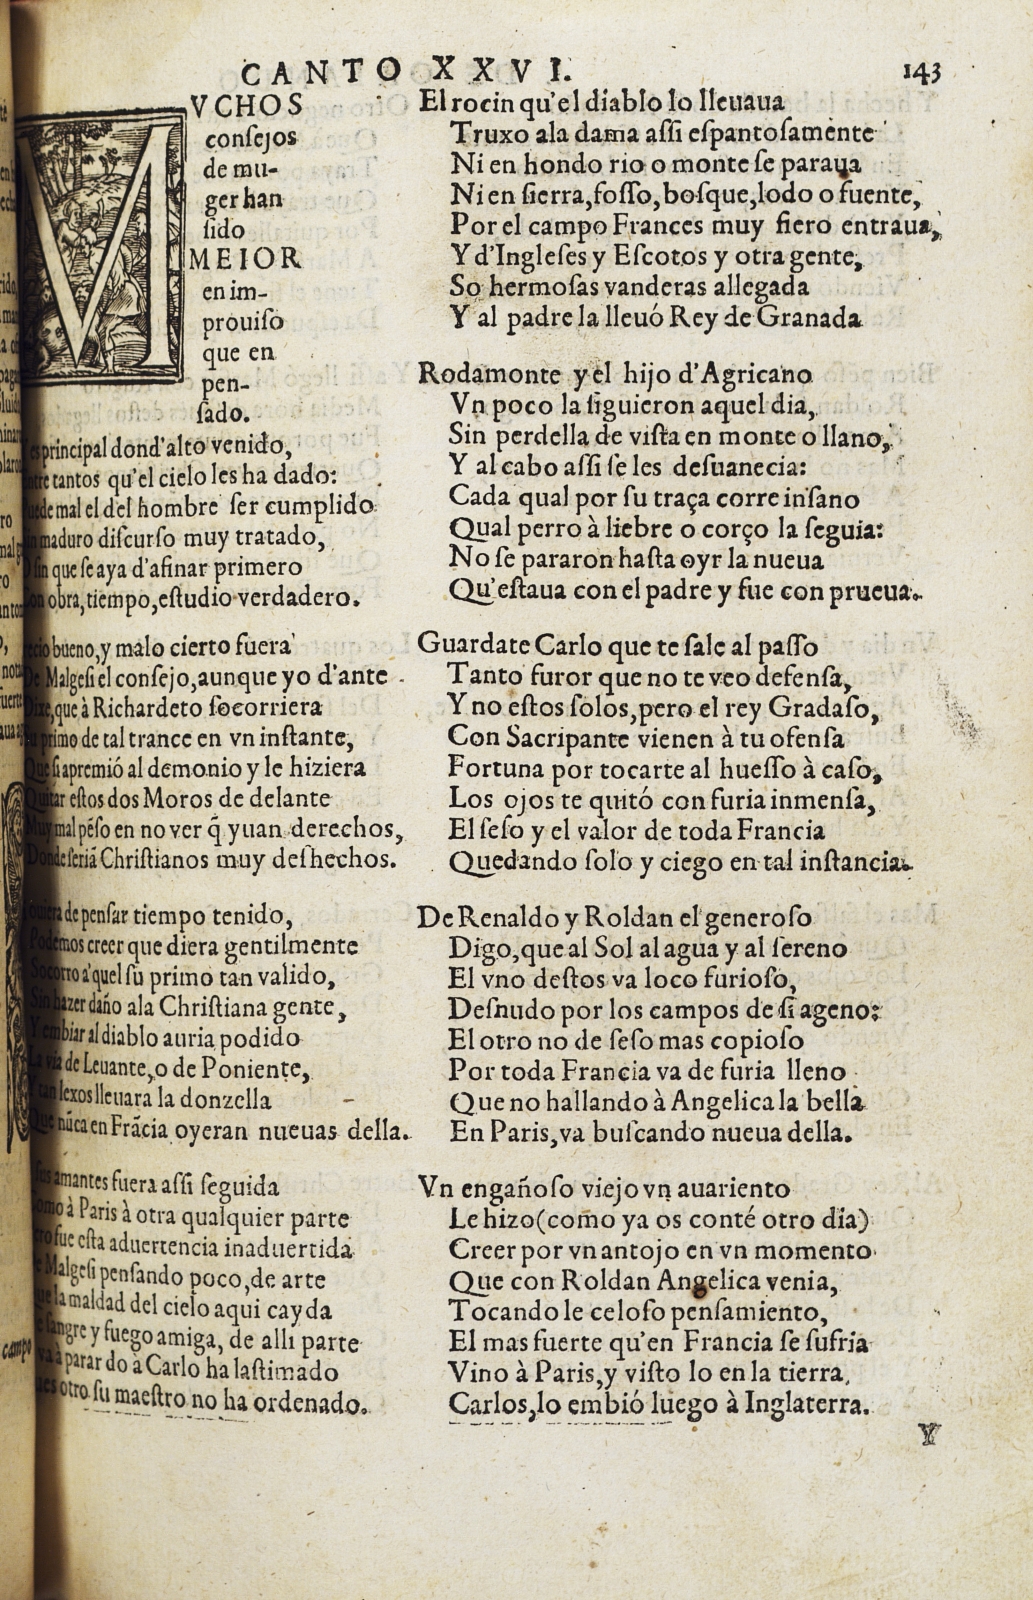 CANTO XXVI.
143
MVCHOS
conſejos
de mu-
ger han
ſido
MEIOR
en im-
prouiſo
que en
pen-
ſado.
principal dond'alto venido,
tantos qu'el cielo les ha dado:
mal el del hombre ſer cumplido
maduro diſcurſo muy tratado,
que ſe aya d'afinar primero
obra, tiempo, eſtudio verdadero.
bueno, y malo cierto fuera
De Malgeſi el conſejo, aunque yo d'ante
Dixe, que à Richardeto ſocorriera
primo de tal trance en vn inſtante,
Que ſi apremió al demonio y le hiziera
Quitar eſtos dos Moros de delante
Muy mal pẽſo en no ver q̃ yuan derechos,
Donde ſeriã Chriſtianos muy deſhechos.
de penſar tiempo tenido,
Podemos creer que diera gentilmente
Socorro a'quel ſu primo tan valido,
Sin hazer daño ala Chriſtiana gente,
Y embiar al diablo auria podido
La via de Leuante, o de Poniente,
Y tan lexos lleuara la donzella
Que nũca en Frãcia oyeran nueuas della.
amantes fuera aſſi ſeguida
à Paris à otra qualquier parte
fue eſta aduertencia inaduertida
Malgeſi penſando poco, de arte
la maldad del cielo aqui cayda
ſangre y fuego amiga, de alli parte
à parar do à Carlo ha laſtimado
otro ſu maeſtro no ha ordenado.
El rocin qu'el diablo lo lleuaua
Truxo ala dama aſſi eſpantoſamente
Ni en hondo rio o monte ſe paraua
Ni en ſierra, foſſo, boſque, lodo o fuente,
Por el campo Frances muy fiero entraua,
Y d'Ingleſes y Eſcotos y otra gente,
So hermoſas vanderas allegada
Y al padre la lleuó Rey de Granada
Rodamonte y el hijo d'Agricano
Vn poco la ſiguieron aquel dia,
Sin perdella de viſta en monte o llano,
Y al cabo aſſi ſe les deſuanecia:
Cada qual por ſu traça corre inſano
Qual perro à liebre o corço la ſeguia:
No ſe pararon haſta oyr la nueua
Qu'eſtaua con el padre y fue con prueua.
Guardate Carlo que te ſale al paſſo
Tanto furor que no te veo defenſa,
Y no eſtos ſolos, pero el rey Gradaſo,
Con Sacripante vienen à tu ofenſa
Fortuna por tocarte al hueſſo à caſo,
Los ojos te quitó con furia inmenſa,
El ſeſo y el valor de toda Francia
Quedando ſolo y ciego en tal inſtancia.
De Renaldo y Roldan el generoſo
Digo, que al Sol al agua y al ſereno
El vno deſtos va loco furioſo,
Deſnudo por los campos de ſi ageno:
El otro no de ſeſo mas copioſo
Por toda Francia va de furia lleno
Que no hallando à Angelica la bella
En Paris, va buſcando nueua della.
Vn engañoſo viejo vn auariento
Le hizo (como ya os conté otro dia)
Creer por vn antojo en vn momento
Que con Roldan Angelica venia,
Tocando le celoſo penſamiento,
El mas fuerte qu'en Francia ſe ſufria
Vino à Paris, y viſto lo en la tierra,
Carlos, lo embió luego à Inglaterra.
Y